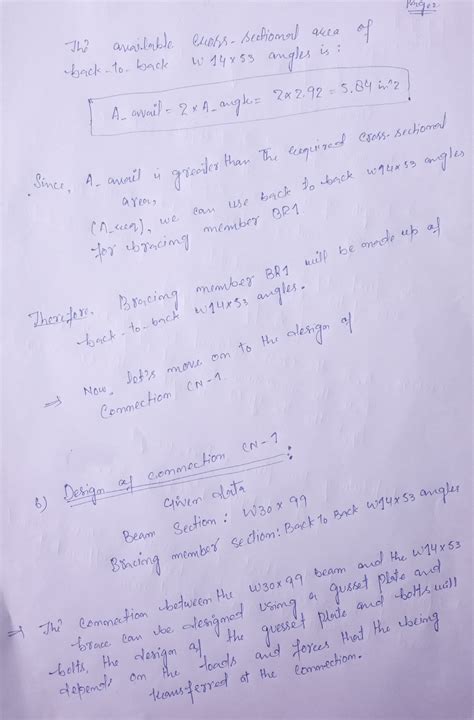 Page 2
The available cross-sectional area of
back-to-back W14x53 angles is :
A_avail = 2 x A_angle = 2 x 2.92 = 5.84 in^2
Since, A_avail is greater than the required cross-sectional
area,
(A_req), we can use back to back W14x53 angles
for bracing member BR1
Therefore, Bracing member BR1 will be made up of
back-to-back W14x53 angles.
⇒ Now, let's move on to the design of
Connection CN-1.
b) Design of connection CN-1 :
Given data
Beam Section : W30x99
Bracing member section: Back to Back W14x53 angles
⇒ The connection between the W30x99 beam and the W14x53
brace can be designed using a gusset plate and
bolts, the design of the gusset plate and bolts will
depends on the loads and forces that the being
transferred at the connection.